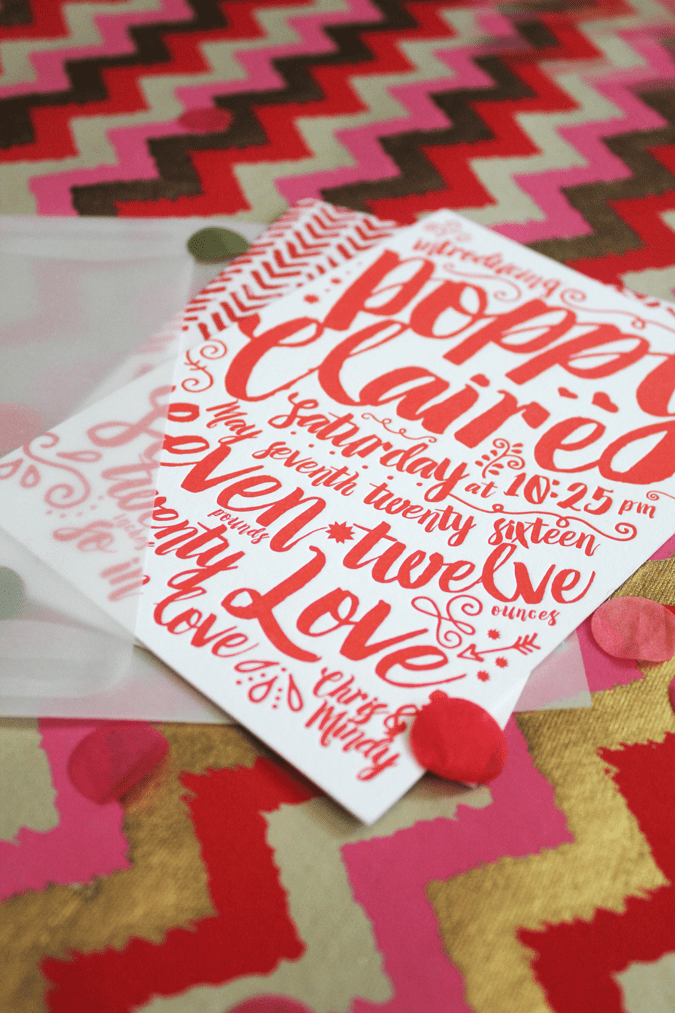 introducing
poppy
Claire
Saturday at 10:25 pm
May seventh twenty sixteen
seven pounds twelve ounces
twenty Love
so in love
Chris &
Mindy